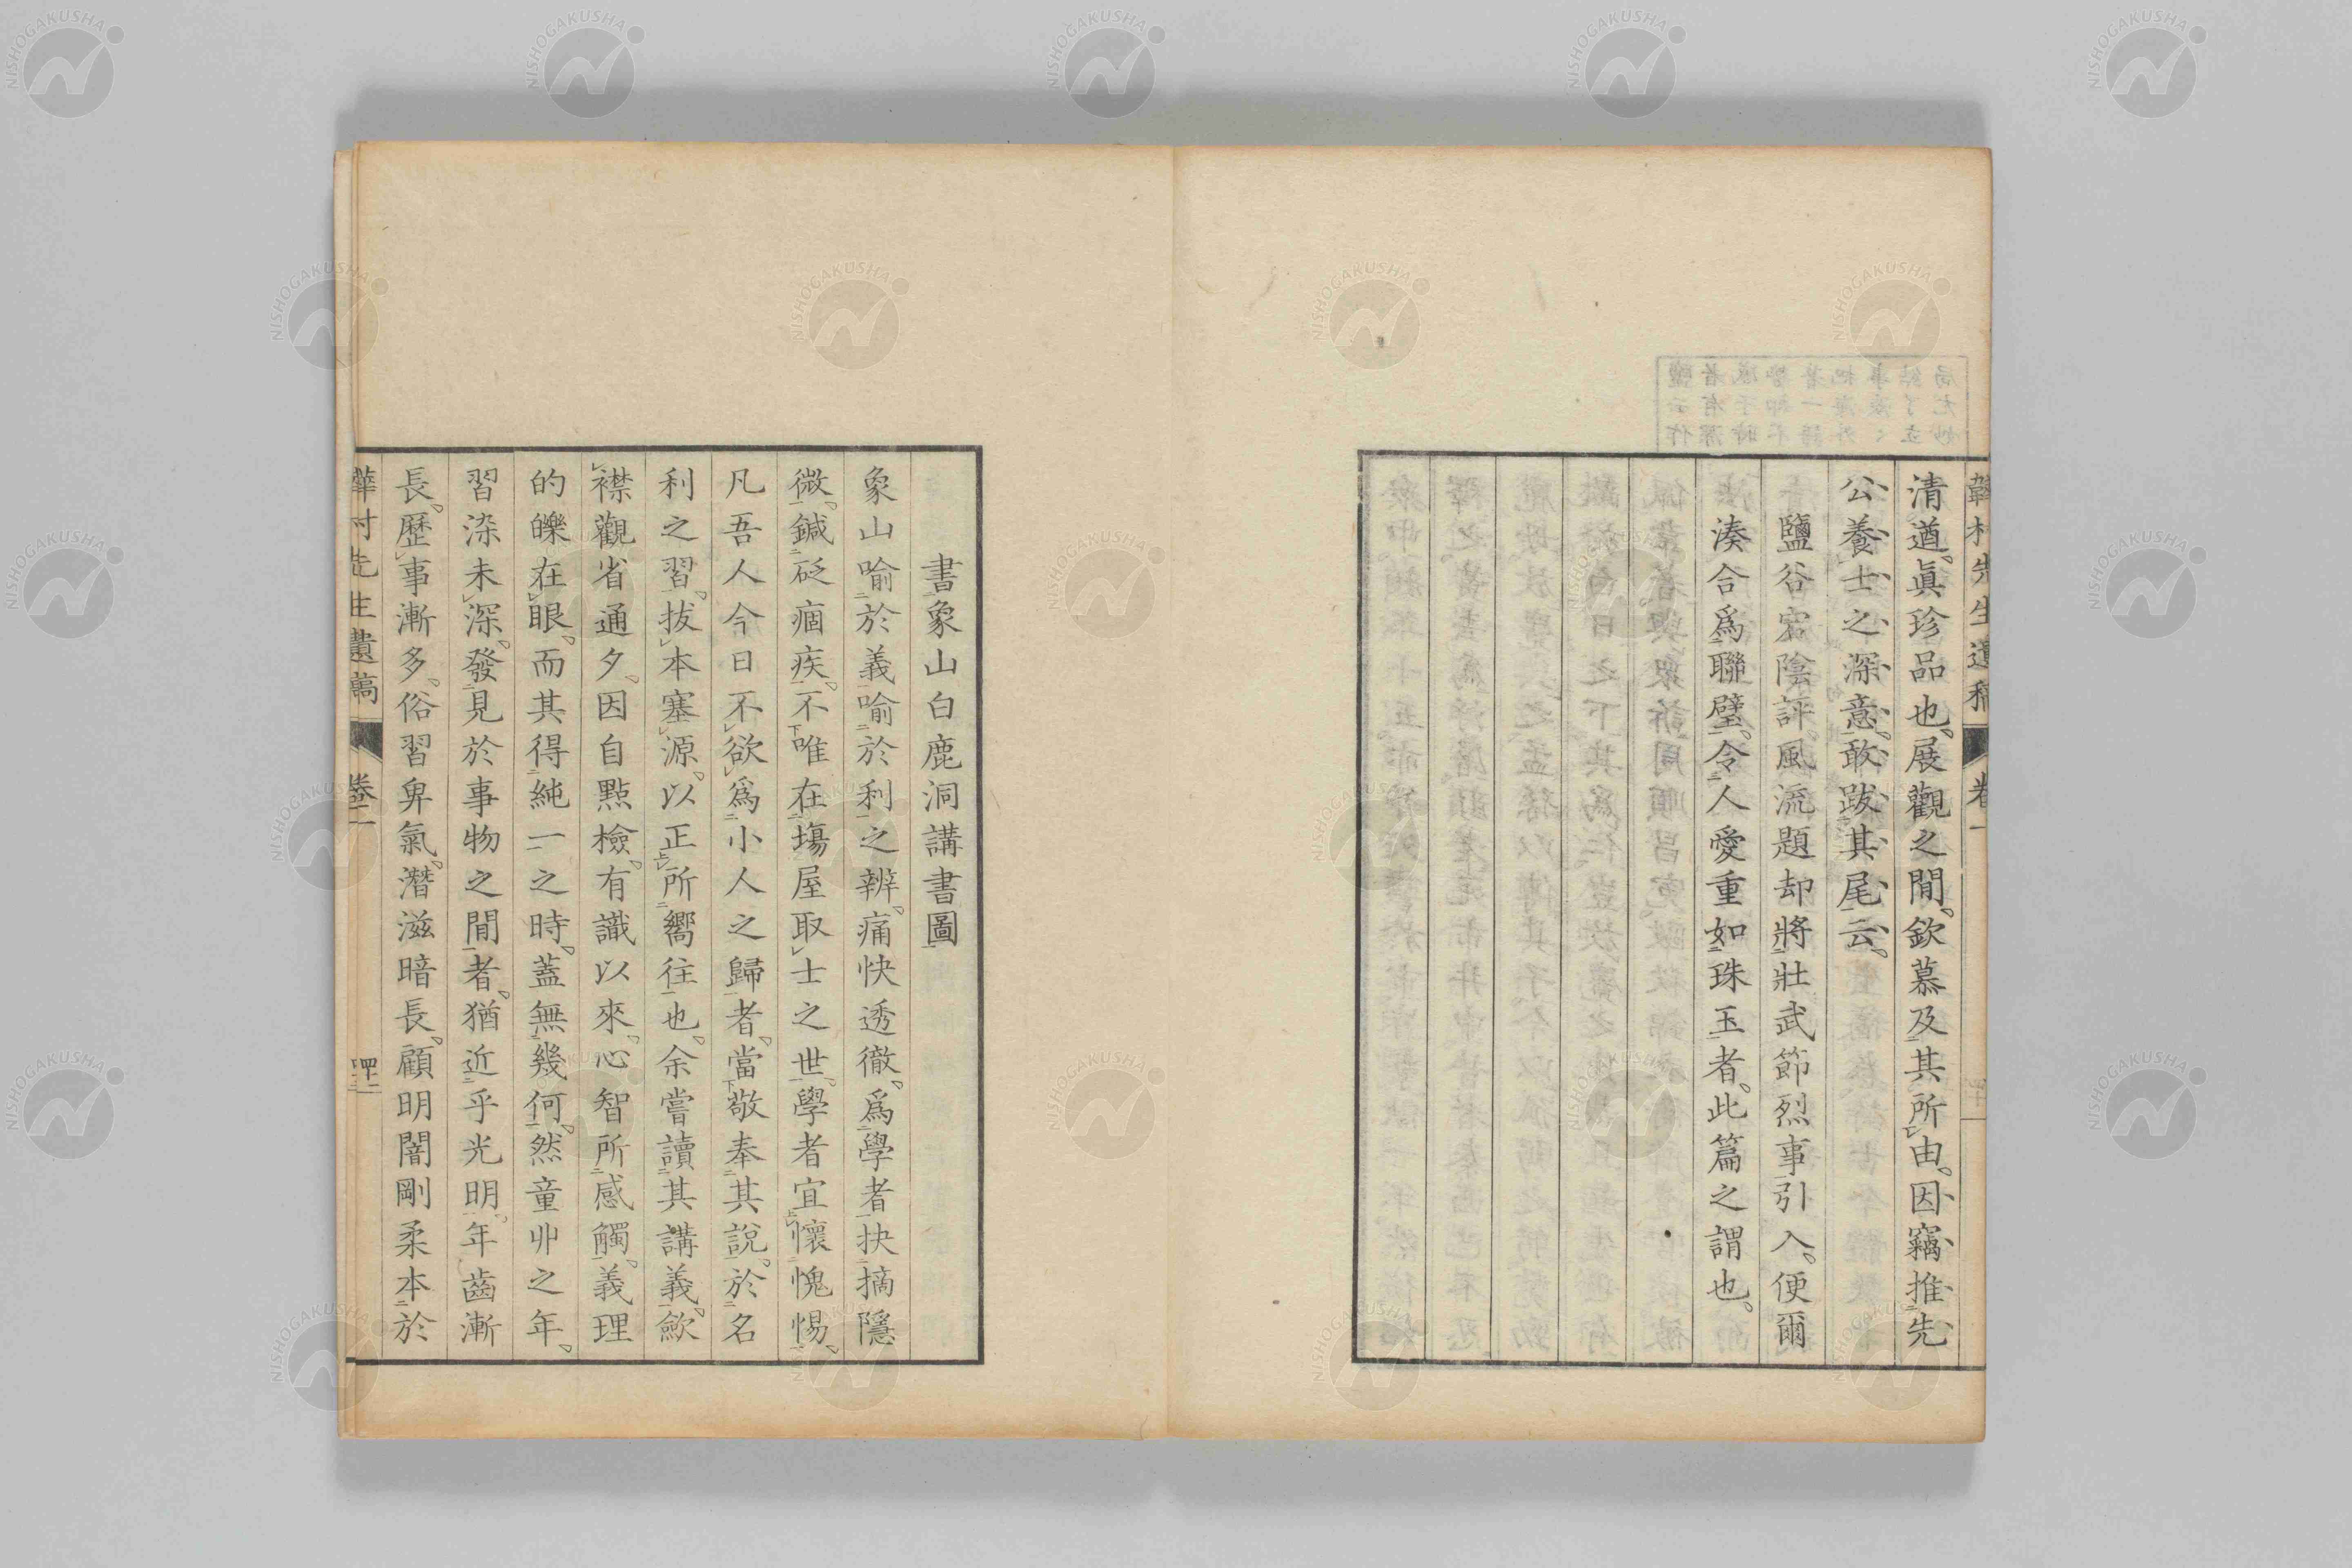 清遒。眞珍品也。展觀之間。欽慕及其所由。因竊推先
公養士之深意。敢跋其尾云。
鹽谷宕陰評。風流題却將壯武節烈事引入。便爾
湊合爲聯璧。令人愛重如珠玉者。此篇之謂也。
書象山白鹿洞講書圖
象山喻於義喻於利之辨。痛快透徹。爲學者抉摘隱
微。鍼砭痼疾。不唯在塲屋取士之世。學者宜懷愧惕。
凡吾人今日不欲爲小人之歸者。當敬奉其說。於名
利之習。拔本塞源。以正所嚮往也。余嘗讀其講義。歛
襟觀省通夕。因自點檢。有識以來。心智所感觸。義理
的皪在眼。而其得純一之時。蓋無幾何。然童丱之年。
習染未深。發見於事物之間者。猶近乎光明。年齒漸
長。歷事漸多。俗習卑氣。潛滋暗長。顧明闇剛柔本於
卷二
NISHOGAKUSHA